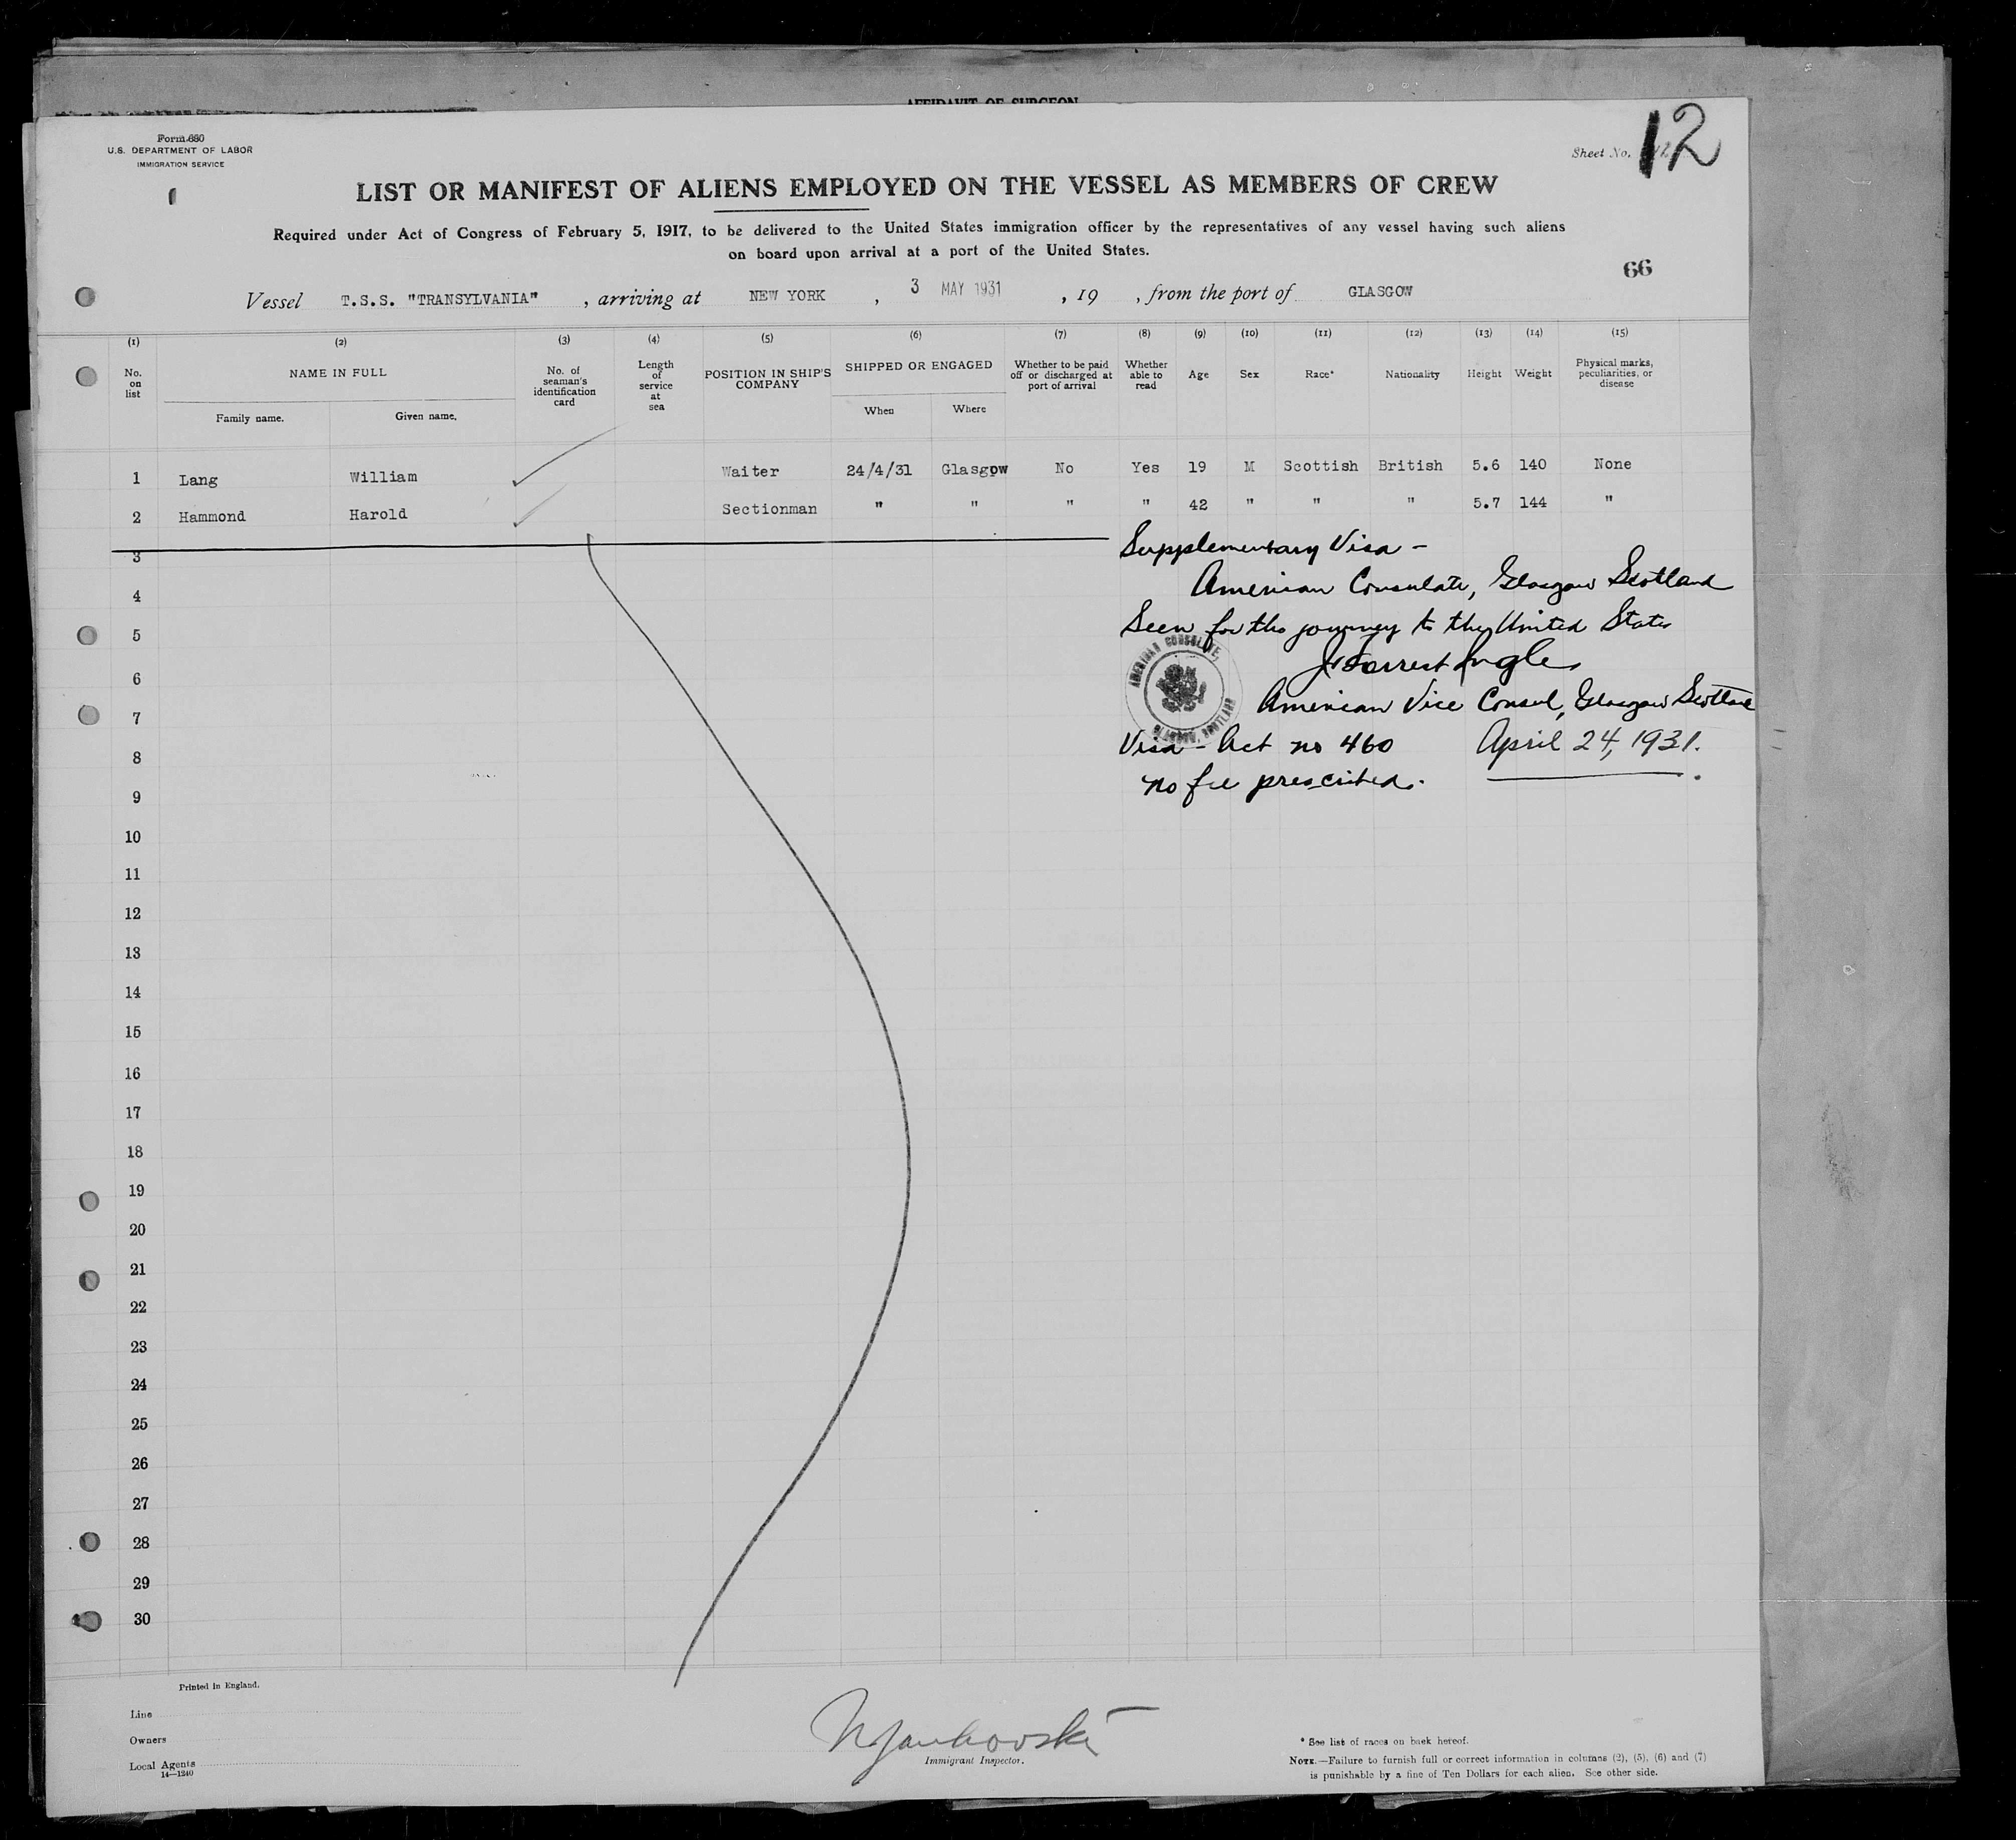 AFFIDAVIT OF SURGEON
Form 680
U.S. DEPARTMENT OF LABOR
IMMIGRATION SERVICE
Sheet No. 12
LIST OR MANIFEST OF ALIENS EMPLOYED ON THE VESSEL AS MEMBERS OF CREW
Required under Act of Congress of February 5, 1917, to be delivered to the United States immigration officer by the representatives of any vessel having such aliens
on board upon arrival at a port of the United States.
66
Vessel T.S.S. "TRANSYLVANIA" , arriving at NEW YORK , 3 MAY 1931 , 19 , from the port of GLASGOW
(1) (2) (3) (4) (5) (6) (7) (8) (9) (10) (11) (12) (13) (14) (15)
No. on list NAME IN FULL No. of seaman's identification card Length of service at sea POSITION IN SHIP'S COMPANY SHIPPED OR ENGAGED Whether to be paid off or discharged at port of arrival Whether able to read Age Sex Race* Nationality Height Weight Physical marks, peculiarities, or disease
Family name. Given name. When Where
1 Lang William Waiter 24/4/31 Glasgow No Yes 19 M Scottish British 5.6 140 None
2 Hammond Harold Sectionman " " " " 42 " " " 5.7 144 "
3
Supplementary Visa -
4
American Consulate, Glasgow Scotland
5
Seen for the journey to the United States
AMERICAN CONSULATE,
GLASGOW, SCOTLAND
6
J Forrest Ingle
7
American Vice Consul, Glasgow Scotland
8
Visa - Act no 460 April 24, 1931.
9
no fee prescribed.
10
11
12
13
14
15
16
17
18
19
20
21
22
23
24
25
26
27
28
29
30
Printed in England.
Line
Owners
Local Agents
14—1240
Immigrant Inspector.
* See list of races on back hereof.
NOTE.—Failure to furnish full or correct information in columns (2), (5), (6) and (7)
is punishable by a fine of Ten Dollars for each alien. See other side.